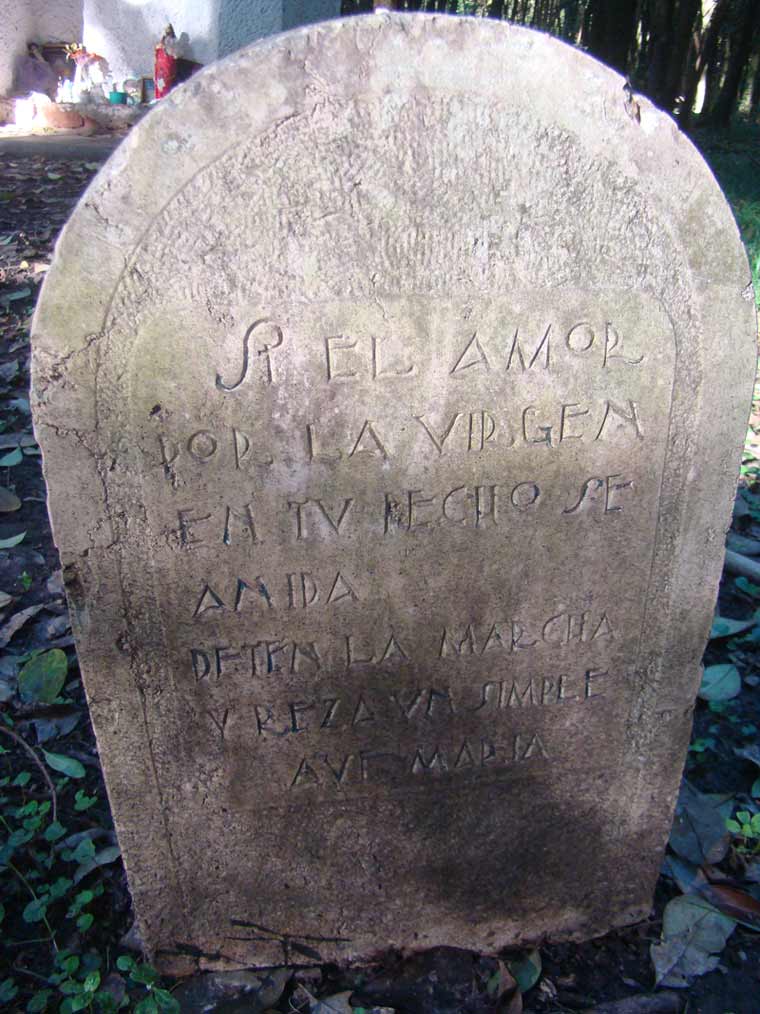 SI EL AMOR
POR LA VIRGEN
EN TU PECHO SE
AMIDA
DETEN LA MARCHA
Y REZA UN SIMPLE
AVE MARIA